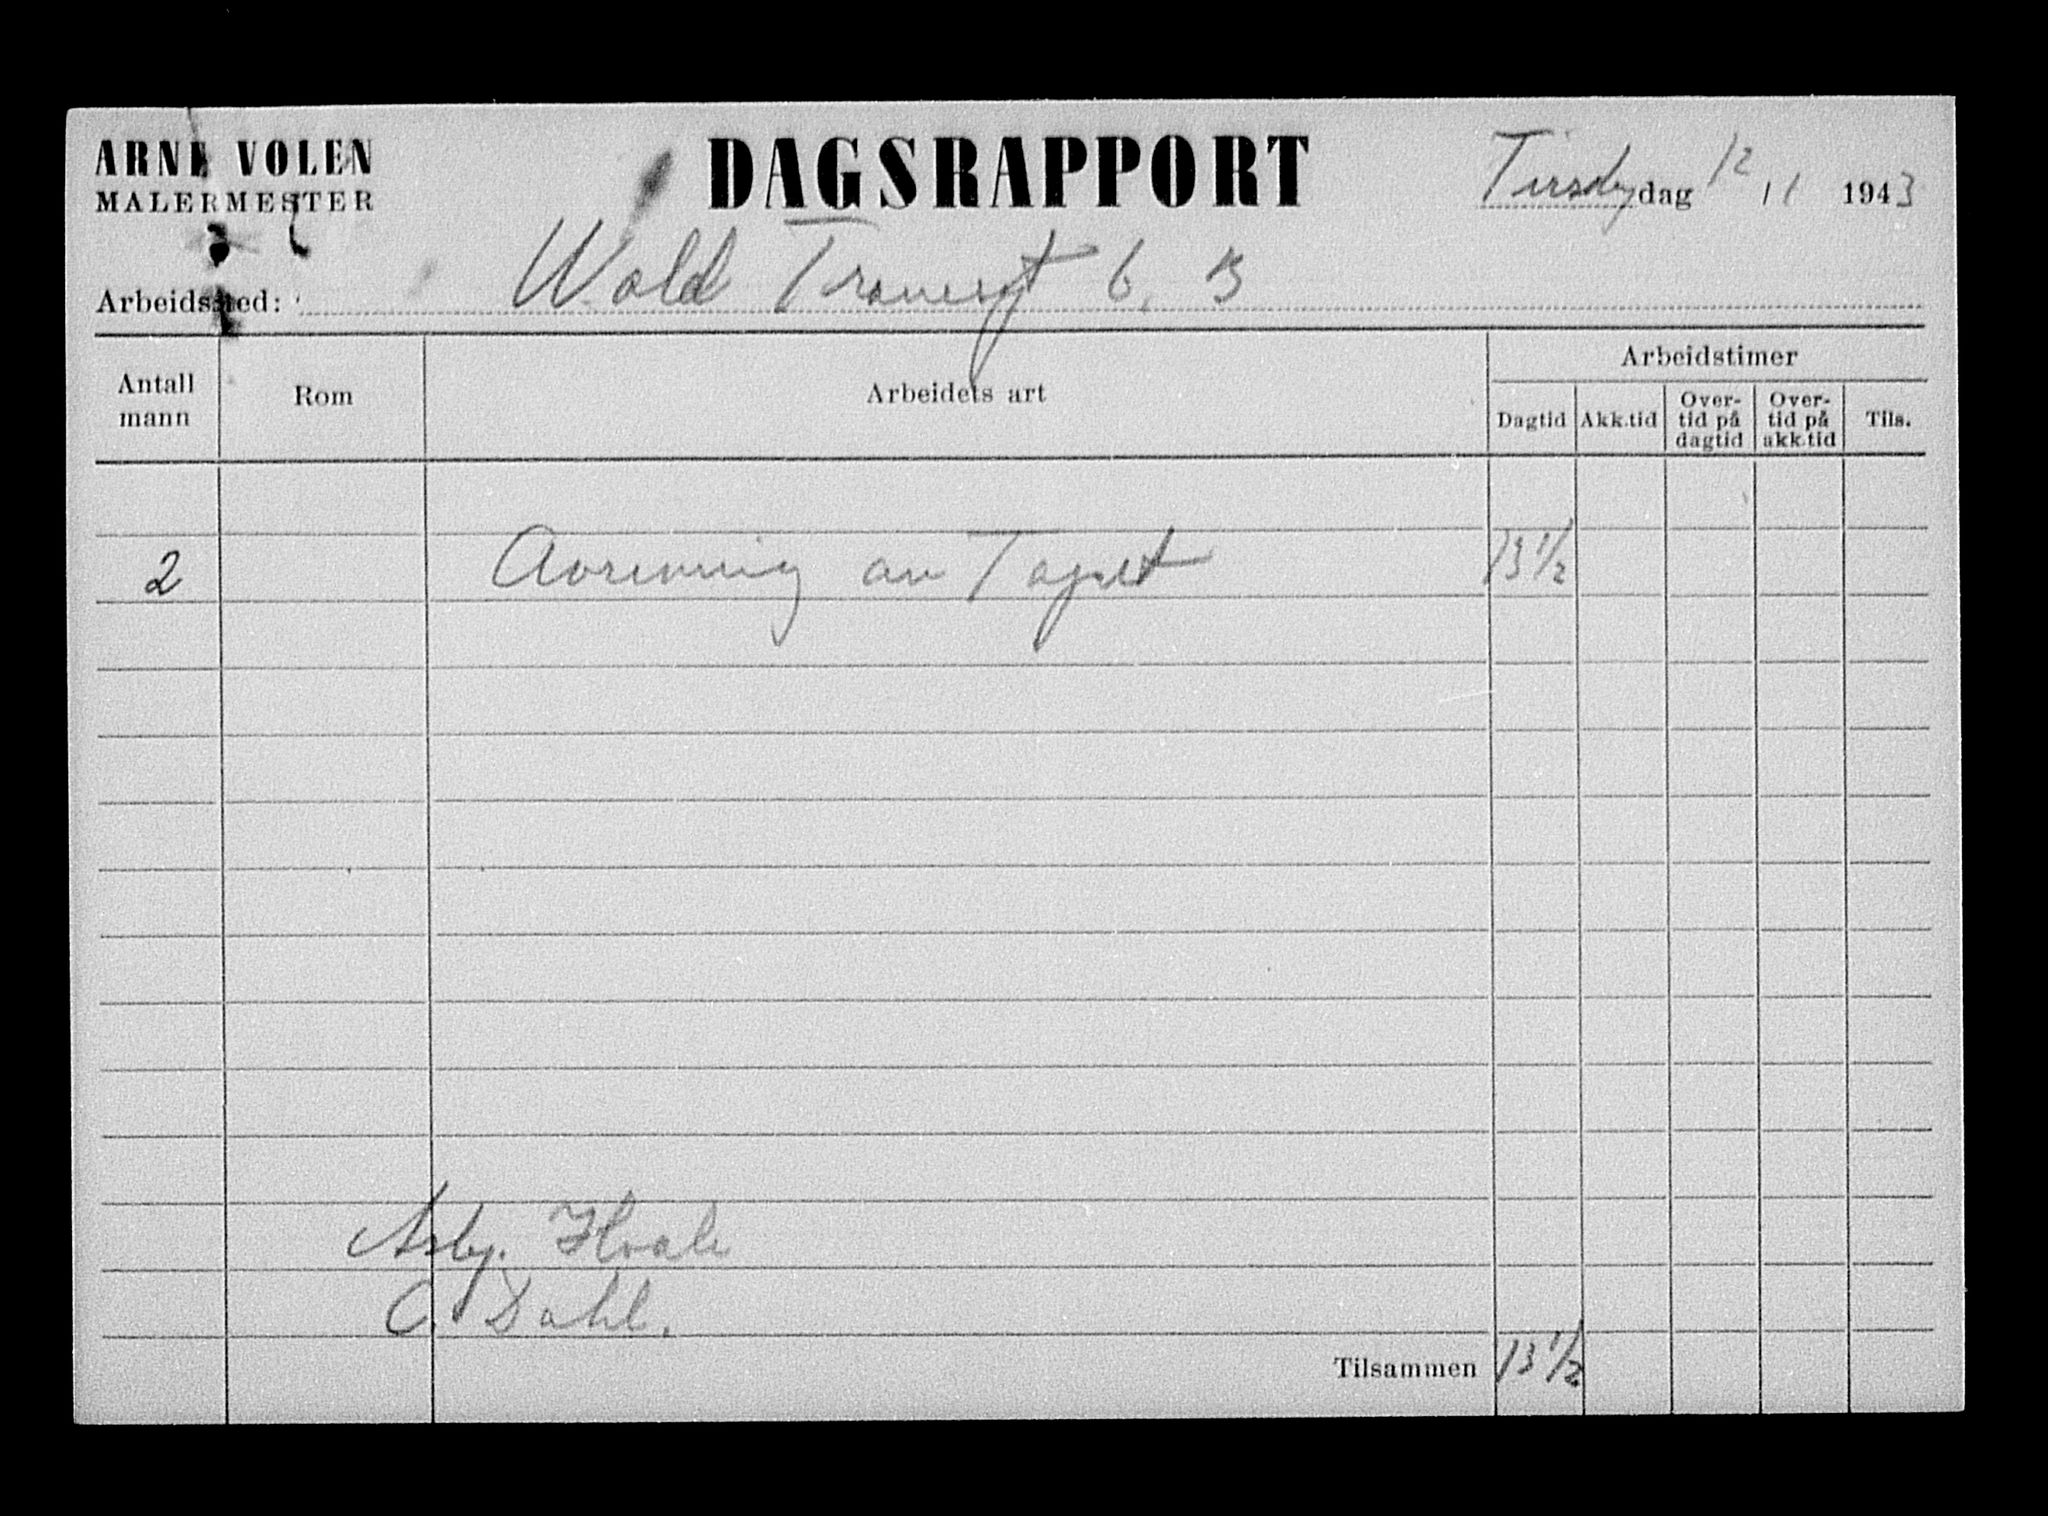 ARNE VOLEN
MALERMESTER
DAGSRAPPORT
Tirsdag dag 12 11 1943
Arbeidssted: Wold Tranesgt 6. B
Antall mann
Rom
Arbeidets art
Arbeidstimer
Dagtid
Akk.tid
Over-
tid på
dagtid
Over-
tid på
akk.tid
Tils.
2 Avrivning av Tapet 13 1/2
Asbj.
C. Dahl.
Tilsammen 13 1/2